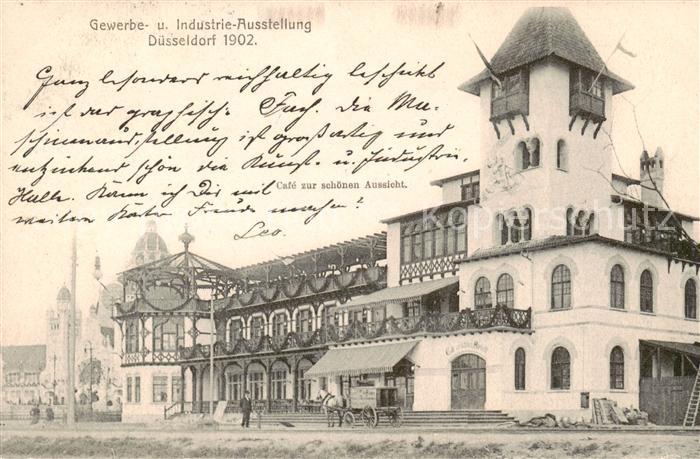 Gewerbe- u. Industrie-Ausstellung
Düsseldorf 1902.
Ganz besonders reichhaltig beschickt
ist das graphische Fach. Die Ma-
schinenausstellung ist großartig und
entzückend schön die Kunst- u. Industrie-
Halle. Kann ich Dir mit
Café zur schönen Aussicht.
weitern Karten Freude machen?
Leo.
kopierschutz